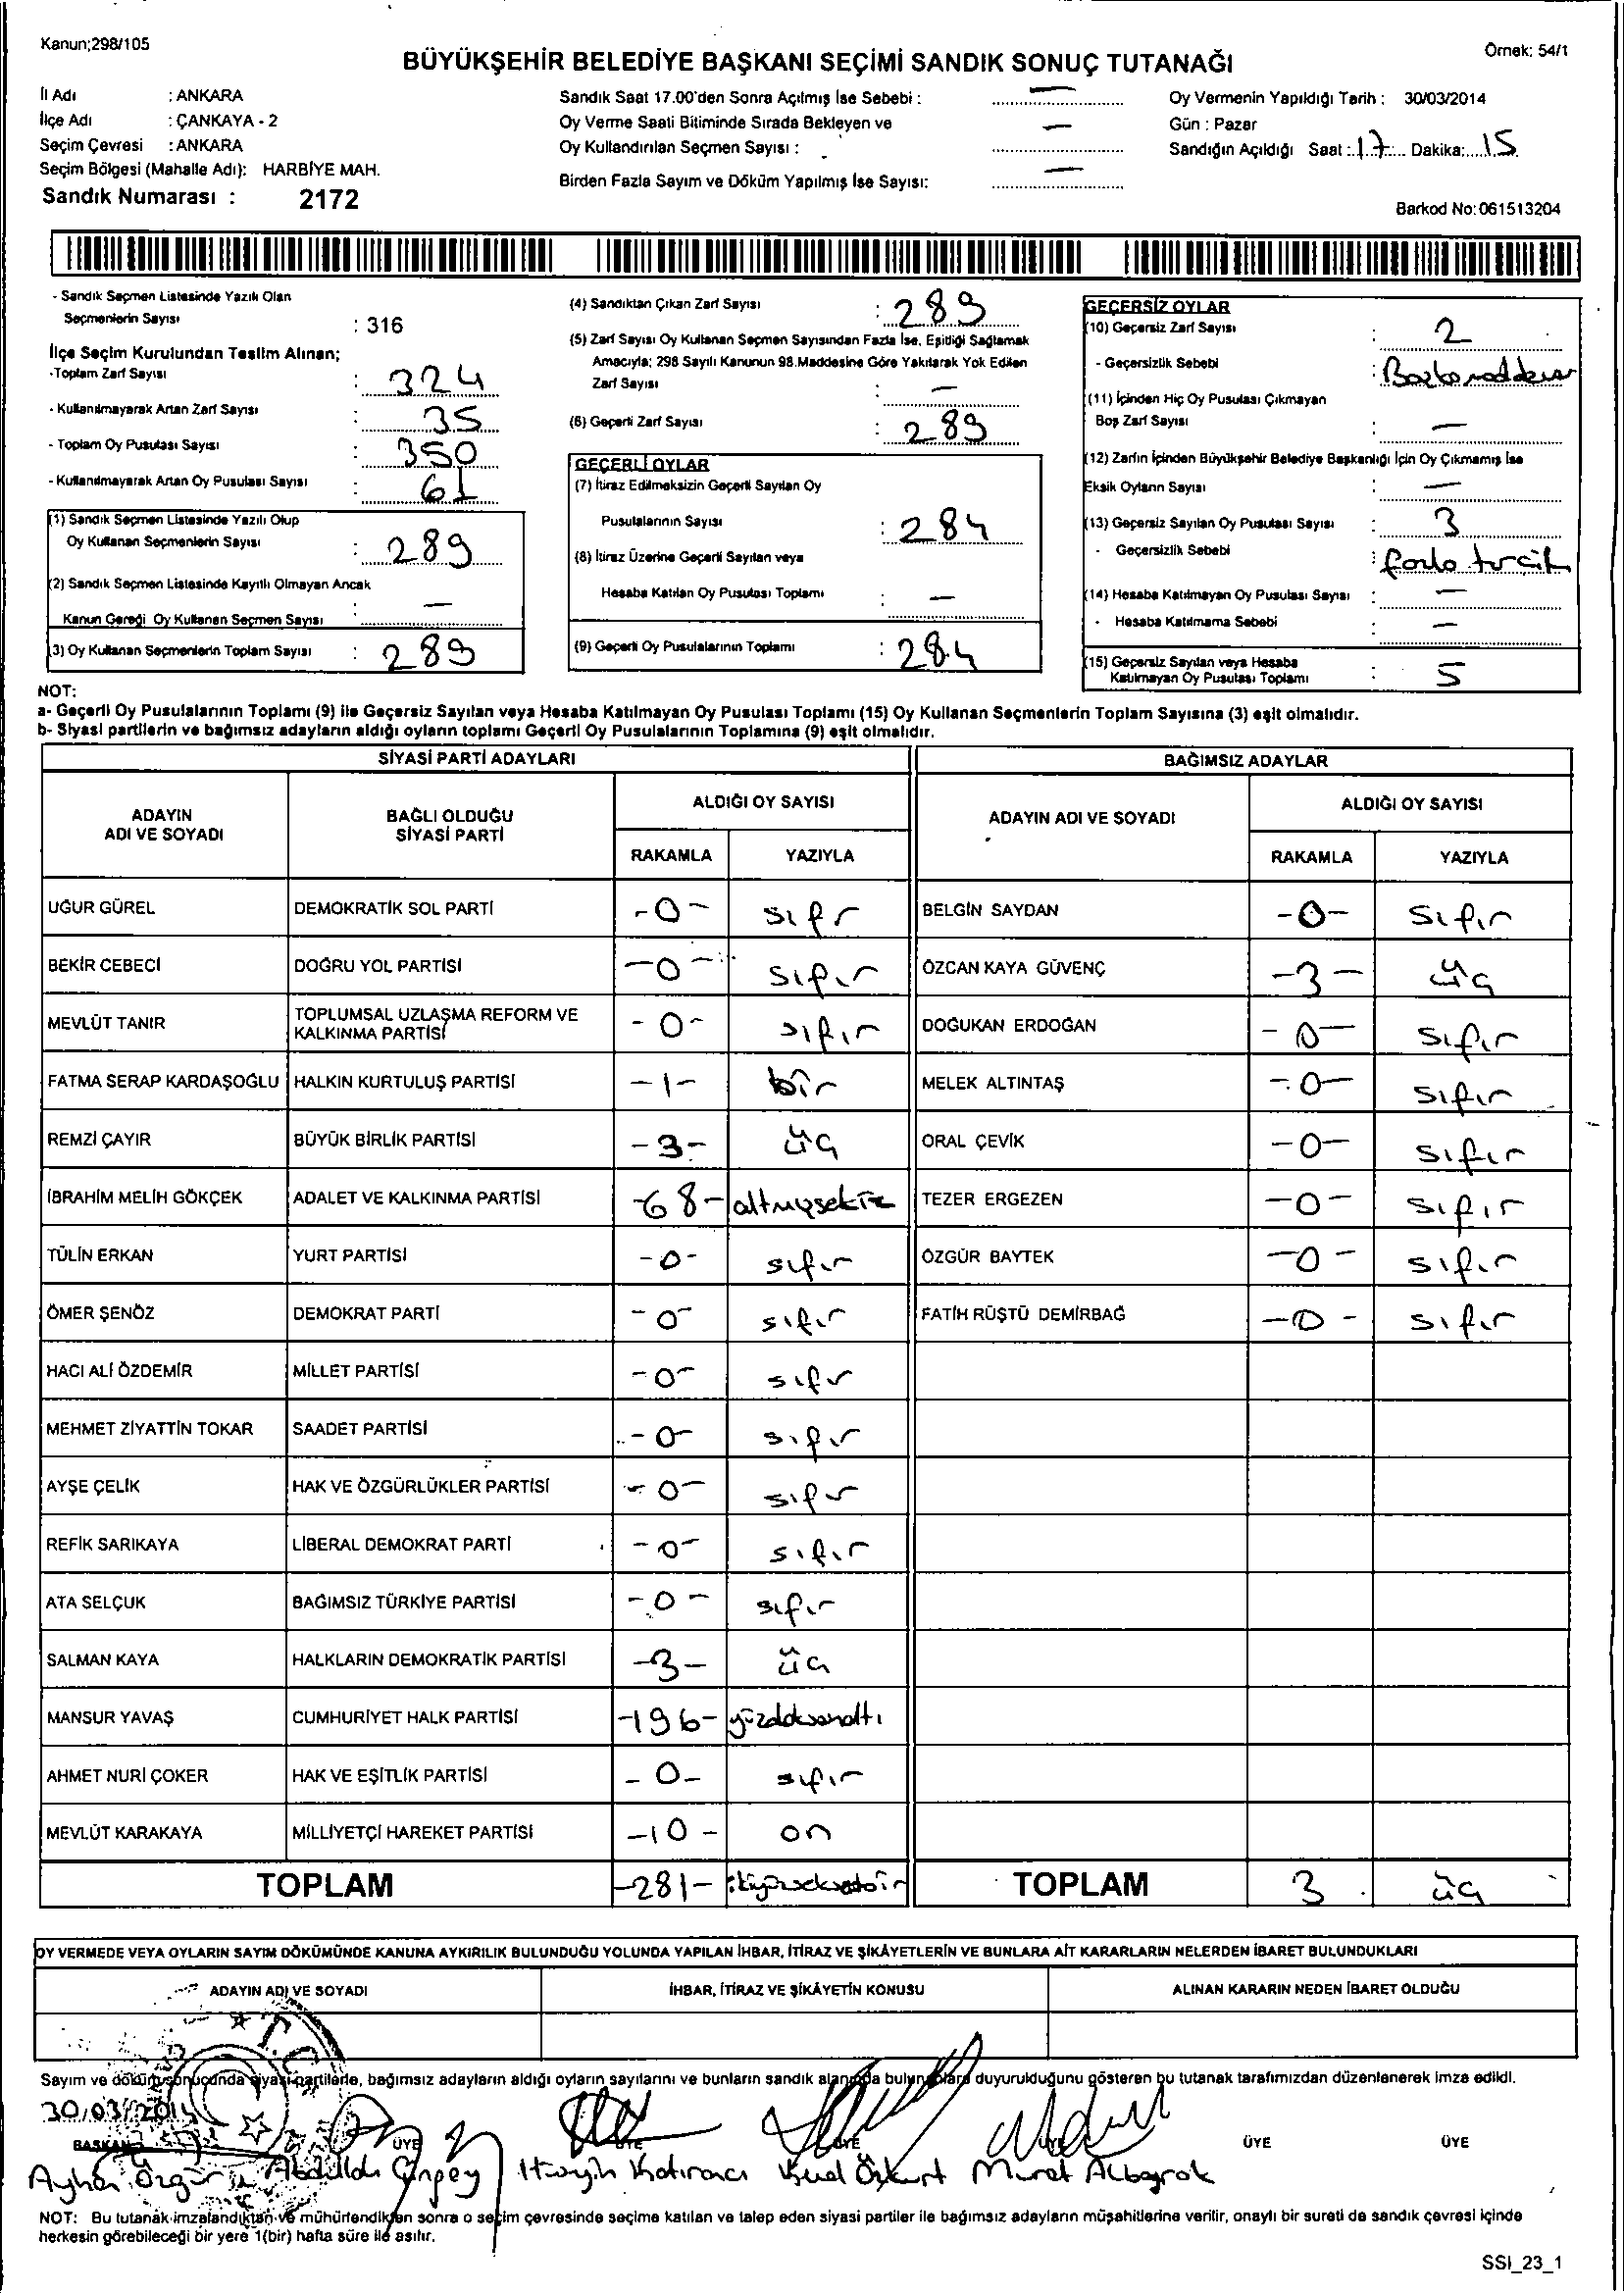 Kanun;298/105
Örnek: 54/1
BÜYÜKŞEHİR BELEDİYE BAŞKANI SEÇİMİ SANDIK SONUÇ TUTANAĞI
İl Adı : ANKARA
İlçe Adı : ÇANKAYA - 2
Seçim Çevresi : ANKARA
Seçim Bölgesi (Mahalle Adı): HARBİYE MAH.
Sandık Numarası : 2172
Sandık Saat 17.00'den Sonra Açılmış İse Sebebi : —
Oy Verme Saati Bitiminde Sırada Bekleyen ve
Oy Kullandırılan Seçmen Sayısı : —
Birden Fazla Sayım ve Döküm Yapılmış İse Sayısı: —
Oy Vermenin Yapıldığı Tarih : 30/03/2014
Gün : Pazar
Sandığın Açıldığı Saat : 17 Dakika: 15
Barkod No:061513204
- Sandık Seçmen Listesinde Yazılı Olan
Seçmenlerin Sayısı : 316
İlçe Seçim Kurulundan Teslim Alınan;
-Toplam Zarf Sayısı : 324
- Kullanılmayarak Artan Zarf Sayısı : 35
- Toplam Oy Pusulası Sayısı : 350
- Kullanılmayarak Artan Oy Pusulası Sayısı : 61
(1) Sandık Seçmen Listesinde Yazılı Olup
Oy Kullanan Seçmenlerin Sayısı : 289
(2) Sandık Seçmen Listesinde Kayıtlı Olmayan Ancak
Kanun Gereği Oy Kullanan Seçmen Sayısı : —
(3) Oy Kullanan Seçmenlerin Toplam Sayısı : 289
(4) Sandıktan Çıkan Zarf Sayısı : 289
(5) Zarf Sayısı Oy Kullanan Seçmen Sayısından Fazla İse, Eşitliği Sağlamak
Amacıyla; 298 Sayılı Kanunun 98.Maddesine Göre Yakılarak Yok Edilen
Zarf Sayısı : —
(6) Geçerli Zarf Sayısı : 289
GEÇERLİ OYLAR
(7) İtiraz Edilmeksizin Geçerli Sayılan Oy
Pusulalarının Sayısı : 284
(8) İtiraz Üzerine Geçerli Sayılan veya
Hesaba Katılan Oy Pusulası Toplamı : —
(9) Geçerli Oy Pusulalarının Toplamı : 284
GEÇERSİZ OYLAR
(10) Geçersiz Zarf Sayısı : 2
- Geçersizlik Sebebi :
(11) İçinden Hiç Oy Pusulası Çıkmayan
Boş Zarf Sayısı : —
(12) Zarfın İçinden Büyükşehir Belediye Başkanlığı İçin Oy Çıkmamış İse
Eksik Oyların Sayısı : —
(13) Geçersiz Sayılan Oy Pusulası Sayısı : 3
- Geçersizlik Sebebi : fazla tercih
(14) Hesaba Katılmayan Oy Pusulası Sayısı : —
- Hesaba Katılmama Sebebi : —
(15) Geçersiz Sayılan veya Hesaba
Katılmayan Oy Pusulası Toplamı : 5
NOT:
a- Geçerli Oy Pusulalarının Toplamı (9) ile Geçersiz Sayılan veya Hesaba Katılmayan Oy Pusulası Toplamı (15) Oy Kullanan Seçmenlerin Toplam Sayısına (3) eşit olmalıdır.
b- Siyasi partilerin ve bağımsız adayların aldığı oyların toplamı Geçerli Oy Pusulalarının Toplamına (9) eşit olmalıdır.
SİYASİ PARTİ ADAYLARI BAĞIMSIZ ADAYLAR
ADAYIN ADI VE SOYADI BAĞLI OLDUĞU SİYASİ PARTİ ALDIĞI OY SAYISI ADAYIN ADI VE SOYADI ALDIĞI OY SAYISI
RAKAMLA YAZIYLA RAKAMLA YAZIYLA
UĞUR GÜREL DEMOKRATİK SOL PARTİ -0- sıfr BELGİN SAYDAN -0- sıfır
BEKİR CEBECİ DOĞRU YOL PARTİSİ -0- sıfır ÖZCAN KAYA GÜVENÇ -3- üç
MEVLÜT TANIR TOPLUMSAL UZLAŞMA REFORM VE KALKINMA PARTİSİ -0- sıfır DOĞUKAN ERDOĞAN -0- sıfır
FATMA SERAP KARDAŞOĞLU HALKIN KURTULUŞ PARTİSİ -1- bir MELEK ALTINTAŞ -0- sıfır
REMZİ ÇAYIR BÜYÜK BİRLİK PARTİSİ -3- üç ORAL ÇEVİK -0- sıfır
İBRAHİM MELİH GÖKÇEK ADALET VE KALKINMA PARTİSİ -68- altmışsekiz TEZER ERGEZEN -0- sıfır
TÜLİN ERKAN YURT PARTİSİ -0- sıfır ÖZGÜR BAYTEK -0- sıfır
ÖMER ŞENÖZ DEMOKRAT PARTİ -0- sıfır FATİH RÜŞTÜ DEMİRBAĞ -0- sıfır
HACI ALİ ÖZDEMİR MİLLET PARTİSİ -0- sıfır
MEHMET ZİYATTİN TOKAR SAADET PARTİSİ -0- sıfır
AYŞE ÇELİK HAK VE ÖZGÜRLÜKLER PARTİSİ -0- sıfır
REFİK SARIKAYA LİBERAL DEMOKRAT PARTİ -0- sıfır
ATA SELÇUK BAĞIMSIZ TÜRKİYE PARTİSİ -0- sıfır
SALMAN KAYA HALKLARIN DEMOKRATİK PARTİSİ -3- üç
MANSUR YAVAŞ CUMHURİYET HALK PARTİSİ -196- yüzdoksanaltı
AHMET NURİ ÇOKER HAK VE EŞİTLİK PARTİSİ -0- sıfır
MEVLÜT KARAKAYA MİLLİYETÇİ HAREKET PARTİSİ -10- on
TOPLAM -281- ikiyüzseksenbir TOPLAM 3 üç
OY VERMEDE VEYA OYLARIN SAYIM DÖKÜMÜNDE KANUNA AYKIRILIK BULUNDUĞU YOLUNDA YAPILAN İHBAR, İTİRAZ VE ŞİKÂYETLERİN VE BUNLARA AİT KARARLARIN NELERDEN İBARET BULUNDUKLARI
ADAYIN ADI VE SOYADI İHBAR, İTİRAZ VE ŞİKÂYETİN KONUSU ALINAN KARARIN NEDEN İBARET OLDUĞU
Sayım ve döküm sonucunda siyasi partilerle, bağımsız adayların aldığı oyların sayılarını ve bunların sandık alanında bulunanlara duyurulduğunu gösteren bu tutanak tarafımızdan düzenlenerek imza edildi.
30/03/2014
BAŞKAN ÜYE ÜYE ÜYE ÜYE ÜYE ÜYE
Ayhan Özgür Abdullah Hüseyin Katırancı Murat Albayrak
NOT: Bu tutanak imzalandıktan ve mühürlendikten sonra o seçim çevresinde seçime katılan ve talep eden siyasi partiler ile bağımsız adayların müşahitlerine verilir, onaylı bir sureti de sandık çevresi içinde
herkesin görebileceği bir yere 1(bir) hafta süre ile asılır.
SSI_23_1